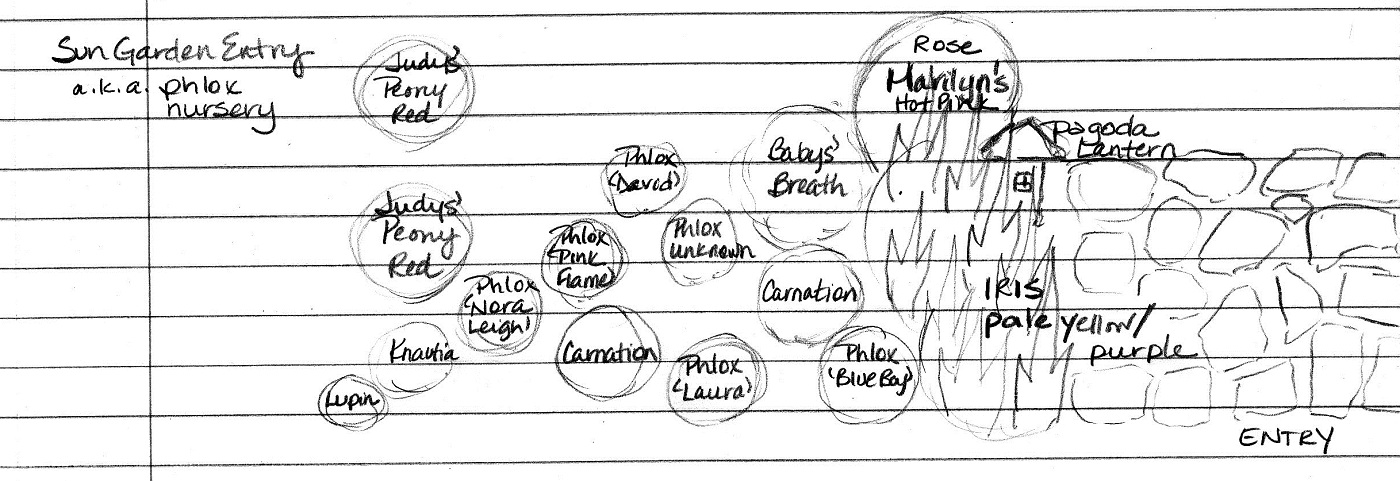 Sun Garden Entry
a.k.a. phlox
nursery
Judys'
Peony
Red
Rose
Marilyn's
Hot Pink
Pagoda
Lantern
Phlox
'David'
Babys'
Breath
Judys'
Peony
Red
Phlox
'Pink
Flame'
Phlox
Unknown
Phlox
'Nora
Leigh'
Carnation
IRIS
pale yellow/
purple
Knautia
Carnation
Phlox
'Laura'
Phlox
'Blue Boy'
Lupin
ENTRY